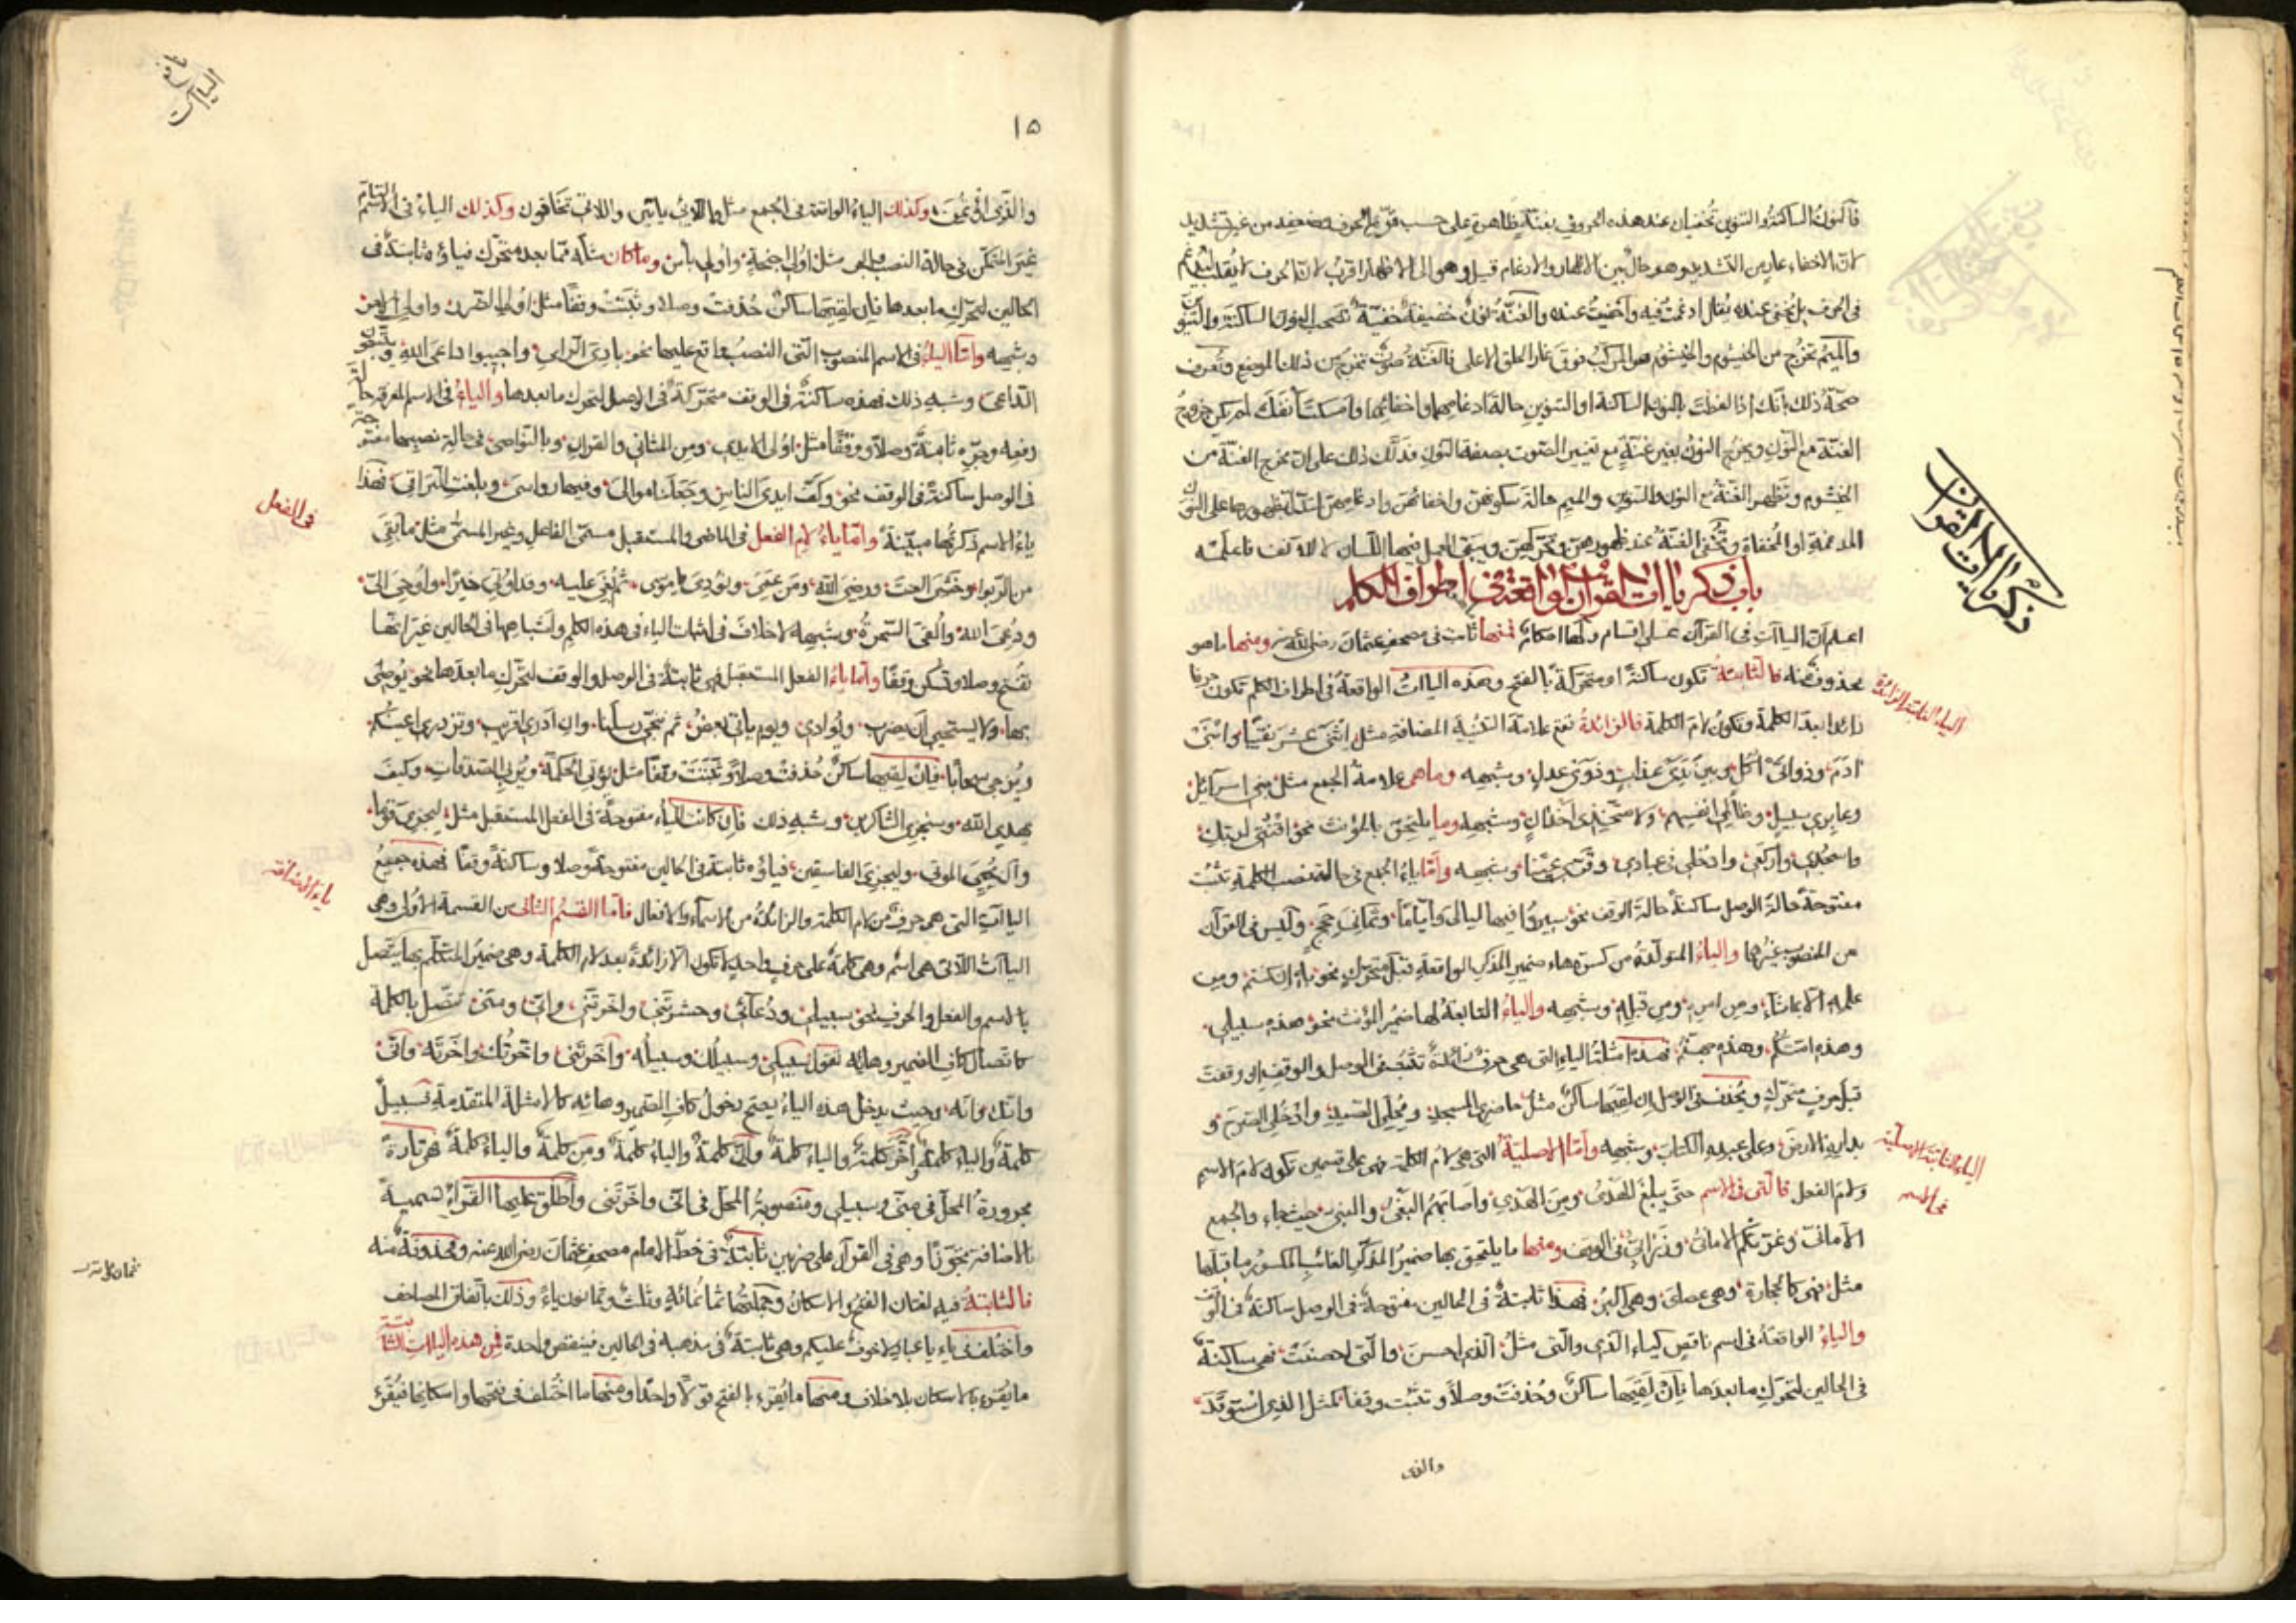 فالنون الساكنة والتنوين تخفيان عند هذه الحروف بغنة ظاهرة على حسب قوة الحرف وضعفه من غير تشديد
لان الاخفاء عار من التشديد وهو حال بين الاظهار والادغام قيل وهو الى الاظهار اقرب لان الحرف لا يُقلب
في الحرف بل يخفى عنده يقال ادغمت فيه واخفيت عنده والغنّة نون خفيفة خفيّة تصحب النون الساكنة والتنوين
والميم تخرج من الخيشوم والخيشوم هو المركب فوق غار الحلق الاعلى فالغنّة صوت تخرج من ذلك الموضع وتُعرف
صحّة ذلك بانك اذا لفظت بالنون الساكنة او التنوين حالة ادغامهما واخفائهما وامسكت انفك لم يكن خروج
الغنّة مع النون ويخرج النون بغير غنّة مع تغيير الصوت بصفة النون فدلّك ذلك على ان مخرج الغنّة من
الخيشوم وتظهر الغنّة مع النون والتنوين والميم حالة سكونهن واخفائهن وادغامهن
المدغمة او المخفاة وتخفى الغنّة عند ظهورهن وتحركهن ويبقى العمل فيها اللسان لا للانف فاعلمه
باب ذكر ياات القرآن الواقعة في اطراف الكلم
اعلم ان الياآت في القرآن على اقسام ولها احكام فمنها ثابت في مصحف عثمان رضي الله عنه ومنها ما هو
محذوف منه فالثابتة تكون ساكنة او متحركة بالفتح وهذه الياات الواقعة في اطراف الكلم تكون حرفا
زائدا بعد الكلمة وتكون لام الكلمة فالزائدة تقع علامة التثنية المضافة مثل اثنى عشر نقيبا وابنى
ادم وذواتى اكل وبين يدى عذاب وذوى عدل وشبهه وما هى علامة الجمع مثل بنى اسرائيل
وعابرى سبيل وظالمى انفسهم ولا متخذى اخدان وشبهه وما يلتحق بالمؤنث نحو اقنتى لربك
واسجدى واركعى وادخلى في عبادى وقرى عينا وشبهه وامّا ياء الجمع في حالة نصب الكلمة تثبت
مفتوحة حالة الوصل ساكنة حالة الوقف نحو سيروا فيها ليالى وايّاما وثمانى حجج وليس في القرآن
من المنصوب غيرها والياء المتولّدة من كسرة هاء ضمير المذكر الواقعة قبل متحرك نحو به ان كنتم ومن
علمه الا بما شاء ومن امره ومن قبله وشبهه والياء التابعة لها ضمير المؤنث نحو هذه سبيلى
وهذه امتكم وهذه جهنم فهذه امثلة الياء التى هى حرف زائدة تثبت في الوصل والوقف ان وقعت
قبل حرف متحرك ويحذف في الوصل ان لقيها ساكن مثل حاضرى المسجد ومحلّى الصيد وادخلى الصرح و
بداره الارض وعلى عبده الكتاب وشبهه وامّا الاصليّة التى هى لام الكلمة فهى على قسمين تكون لام الاسم
ولام الفعل فالتى في الاسم حتى يبلغ الهدى ومن الهدى واصابهم البغى والنبى حيث جاء والجمع
الامانى وغرتكم الامانى وفي الوقف ومنها ما يلتحق بها ضمير المذكر الغائب المكسور ما قبلها
مثل فهى كالحجارة وهى عصاى وهى اكبر فهذا ثابتة في الحالين مفتوحة في الوصل ساكنة في الوقف
والياء الواقعة في اسم ناقص كياء الذى والتى مثل الذى احسن والتى احصنت فهى ساكنة
في الحالين لتحرك ما بعدها فان لقيها ساكن وحذفت وصلا وتثبت وقفا كمثل الذى استوقد
والذى
ذكر ياات القرآن
الياء الثابتة الزائدة
الياء الثابتة الاصلية
في الاسم
١٥
والذى اؤتمن وكذلك الياء الواقعة في الجمع مثل واللائى يئسن واللاتى تخافون وكذلك الياء في الاسم التام
غير المتمكن في حالة النصب والجر مثل اولى اجنحة واولى بأس وما كان مثله ممّا بعده متحرك فياؤه ثابتة في
الحالين لتحرك ما بعدها فان لقيها ساكن حُذفت وصلا وتثبت وقفا مثل اولى الضرر واولى الامر
وشبهه وامّا الياء في الاسم المنصوب التى النصب واقع عليها نحو بادى الراى واجيبوا داعى الله ويتبعون
الداعى وشبه ذلك فهذه ساكنة في الوقف متحركة في الوصل لتحرك ما بعدها والياء في الاسم المعرفة حال
رفعه وجره ثابتة وصلا ووقفا مثل اولى الايدى ومن المثانى والقرآن وبالنواصى في حالة نصبها مفتوحة
في الوصل ساكنة في الوقف نحو وكفّ ايدى الناس وجعلنا موالى وفيها رواسى وبلغت التراقى فهذا
ياء الاسم ذكرتها مبيّنة وامّا ياء لام الفعل في الماضى والمستقبل مسمّى الفاعل وغير المسمّى مثل ما بقى
من الربوا وخشى العنت ورضى الله ومن عفى ونودى يا موسى ثم بُغى عليه وقد اوتى خيرا واوحى الىّ
ودُعى الله والقى السحرة وشبهه لا خلاف في اثبات الياء في هذه الكلم واشباهها في الحالين غير انها
تفتح وصلا وتسكن وقفا وامّا ياء الفعل المستقبل فهى ثابتة في الوصل والوقف لتحرك ما بعدها نحو يوصى
بها ولا يستحيى ان يضرب ويوارى ويوم ياتى بعض ثم ننجى رسلنا وان ادرى اقريب وتزدرى اعينكم
ويزجى سحابا فان لقيها ساكن حُذفت وصلا وتثبت وقفا مثل يؤتى الحكمة ويربى الصدقات وكيف
يهدى الله وسنجزى الشاكرين وشبه ذلك فان كانت الياء مفتوحة في الفعل المستقبل مثل ليجزى قوما
وان يحيى الموتى وليخزى الفاسقين فياؤه ثابتة في الحالين مفتوحة وصلا وساكنة وقفا فهذه جميع
الياات التى هى حرف من لام الكلمة والزائدة من الاسماء والافعال فامّا القسم الثانى من القسمة الاولى وهى
الياات اللاتى هى اسم وهى كلمة على حرف واحد لا تكون الا زائدة بعد لام الكلمة وهى ضمير المتكلم بها يتصل
بالاسم والفعل والحرف نحو سبيلى ودعائى وحشرتنى واخرتنى وانّى ومنّى تتصل بالكلمة
كاتصال كاف الضمير وهائه تقول سبيلى وسبيلك وسبيله واخرتنى واخرتك واخرته وانّى
وانك وانه وحيث يدخل هذه الياء يصح دخول كاف الضمير وهائه كالامثلة المتقدمة فسبيل
كلمة والياء كلمة واخر كلمة والياء كلمة وانّ كلمة والياء كلمة ومن كلمة والياء كلمة فهى تارة
مجرورة المحل في منّى وسبيلى ومنصوبة المحل في انّى واخرتنى واطلق عليها القراء تسمية
الاضافة تجوزا وهى في القرآن على ضربين ثابتة في خط الامام مصحف عثمان رضى الله عنه ومحذوفة منه
فالثابتة فيه لغتان الفتح والاسكان وجملتها ثمانمائة وثلث وثمانون ياء وذلك باتفاق المصاحف
واختلف في ياء يا عباد لا خوف عليكم وهى ثابتة في مذهبه في الحالين فينقص واحدة فمن هذه الياات الثابتة
ما يُقرء بالاسكان بلا خلاف ومنها ما يُقرء بالفتح قولا واحدا ومنها ما اختلف في فتحها واسكانها فيُقرء
في الفعل
ياء الاضافة